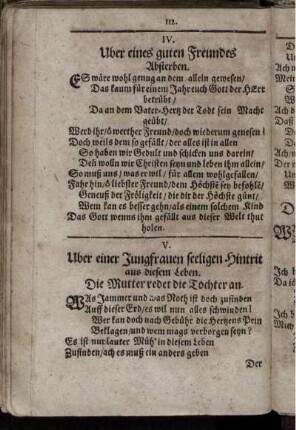 112.
IV.
Uber eines guten Freundes
Absterben.
ES wäre wohl genug an dem allein gewesen/
Das kaum für einem Jahr euch Gott der HErr
betrübt/
Da an dem Vater-Hertz der Todt sein Macht
geübt/
Werd ihr/ô werther Freund/doch wiederum genesen!
Doch weils dem so gefällt/der alles ist in allen
So haben wir Gedult und schicken uns darein/
Deñ wolln wir Christen seyn und leben Ihm allein/
So muß uns/was er wil/für allem wohlgefallen/
Fahr hin/ô liebster Freund/dem Höchste sey befohlē/
Geneuß der Fröligkeit/die dir der Höchste günt/
Wem kan es besser gehn/als einem solchem Kind
Das Gott wenns ihm gefällt aus dieser Welt thut
holen.
V.
Uber einer Jungfrauen seeligen Hintrit
aus diesem Leben.
Die Mutter redet die Tochter an.
WAs Jammer und was Noth ist doch zufinden
Auff dieser Erd/es wil nun alles schwinden!
Wer kan doch nach Gebühr die Hertzens Pein
Beklagen/und wem mags verborgen seyn?
Es ist nur lauter Müh' in diesem Leben
Zufinden/ach es muß ein anders geben
Der